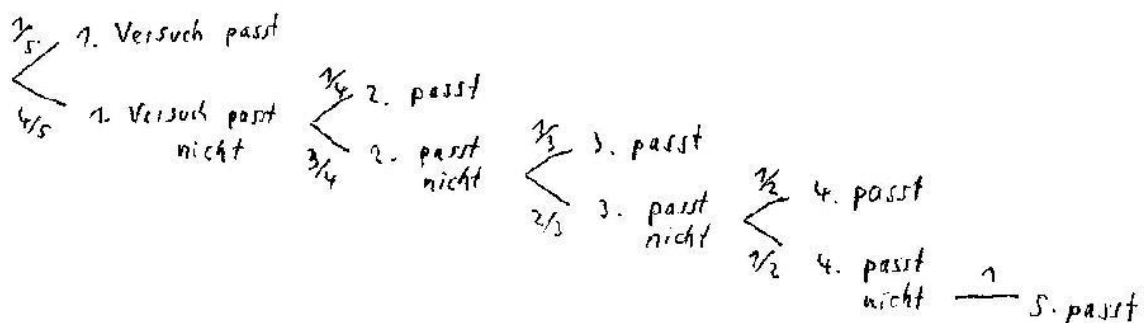 1/5
1. Versuch passt
4/5
1. Versuch passt
nicht
1/4
2. passt
3/4
2. passt
nicht
1/3
3. passt
2/3
3. passt
nicht
1/2
4. passt
1/2
4. passt
nicht
1
5. passt